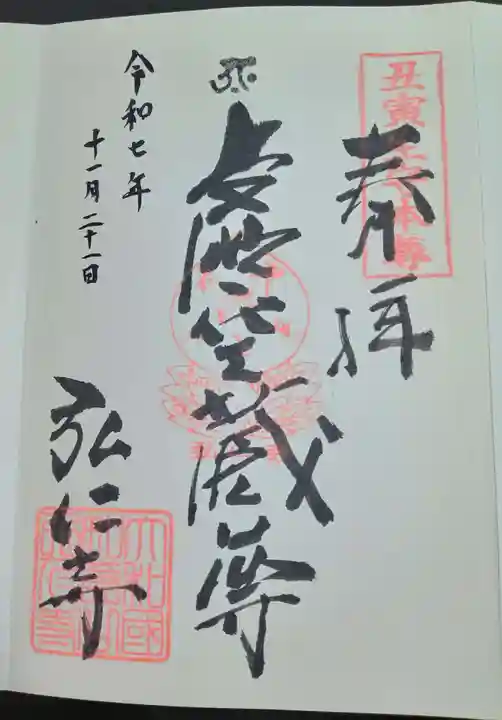 奉拝
丑寅
本尊
虚空蔵尊
弘仁寺
令和七年
十一月二十一日